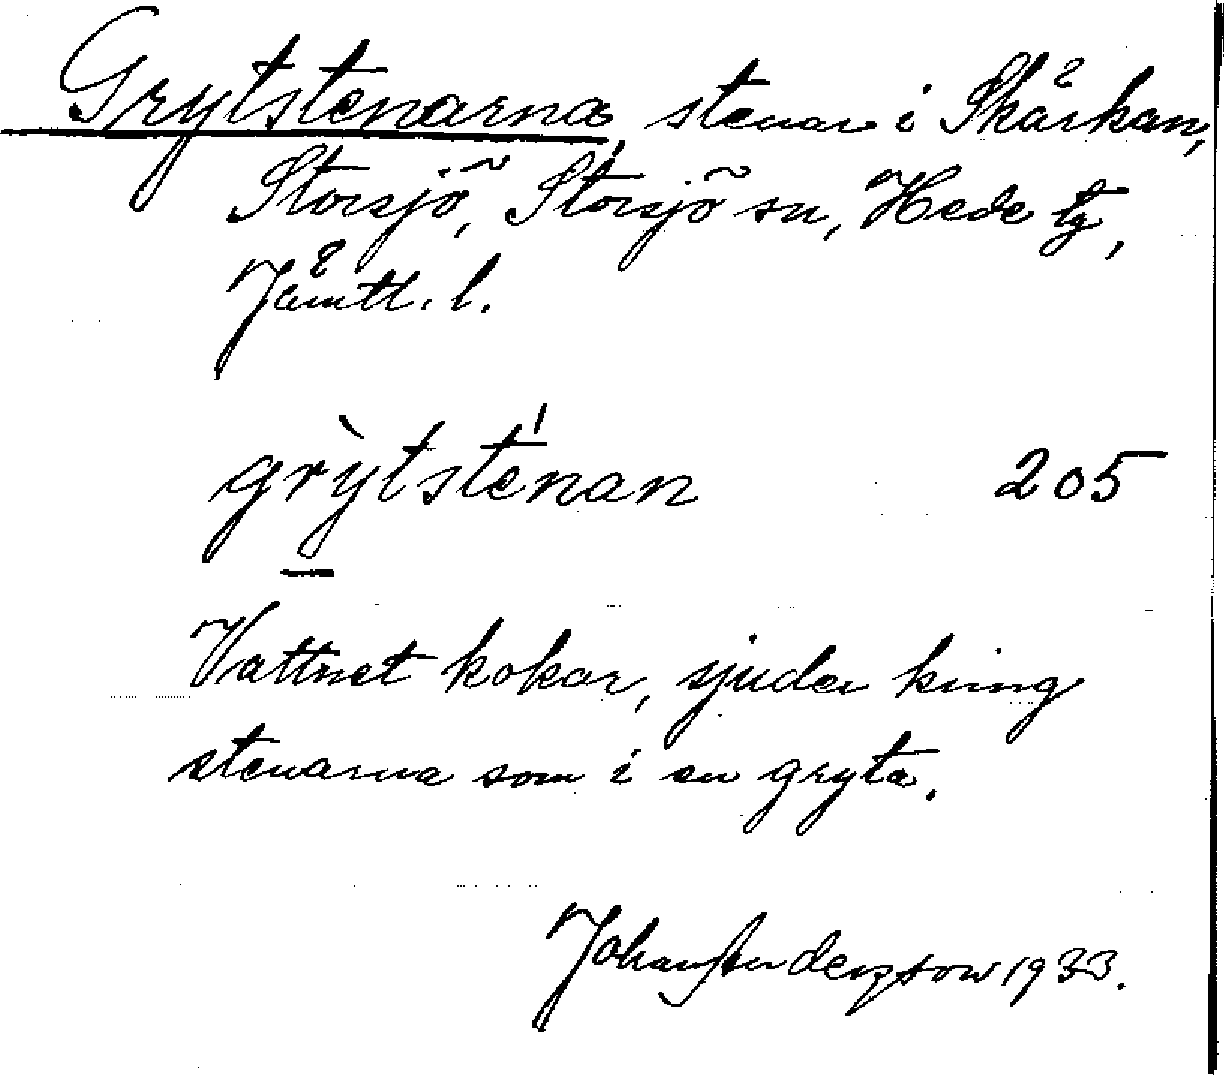 Grytstenarna, stenar i Skärkan,
Storsjö, Storsjö sn, Hede tg,
Jämtl. l.
grỳtsténan 205
Vattnet kokar, sjuder kring
stenarna som i en gryta.
Johan Anderzson 1933.